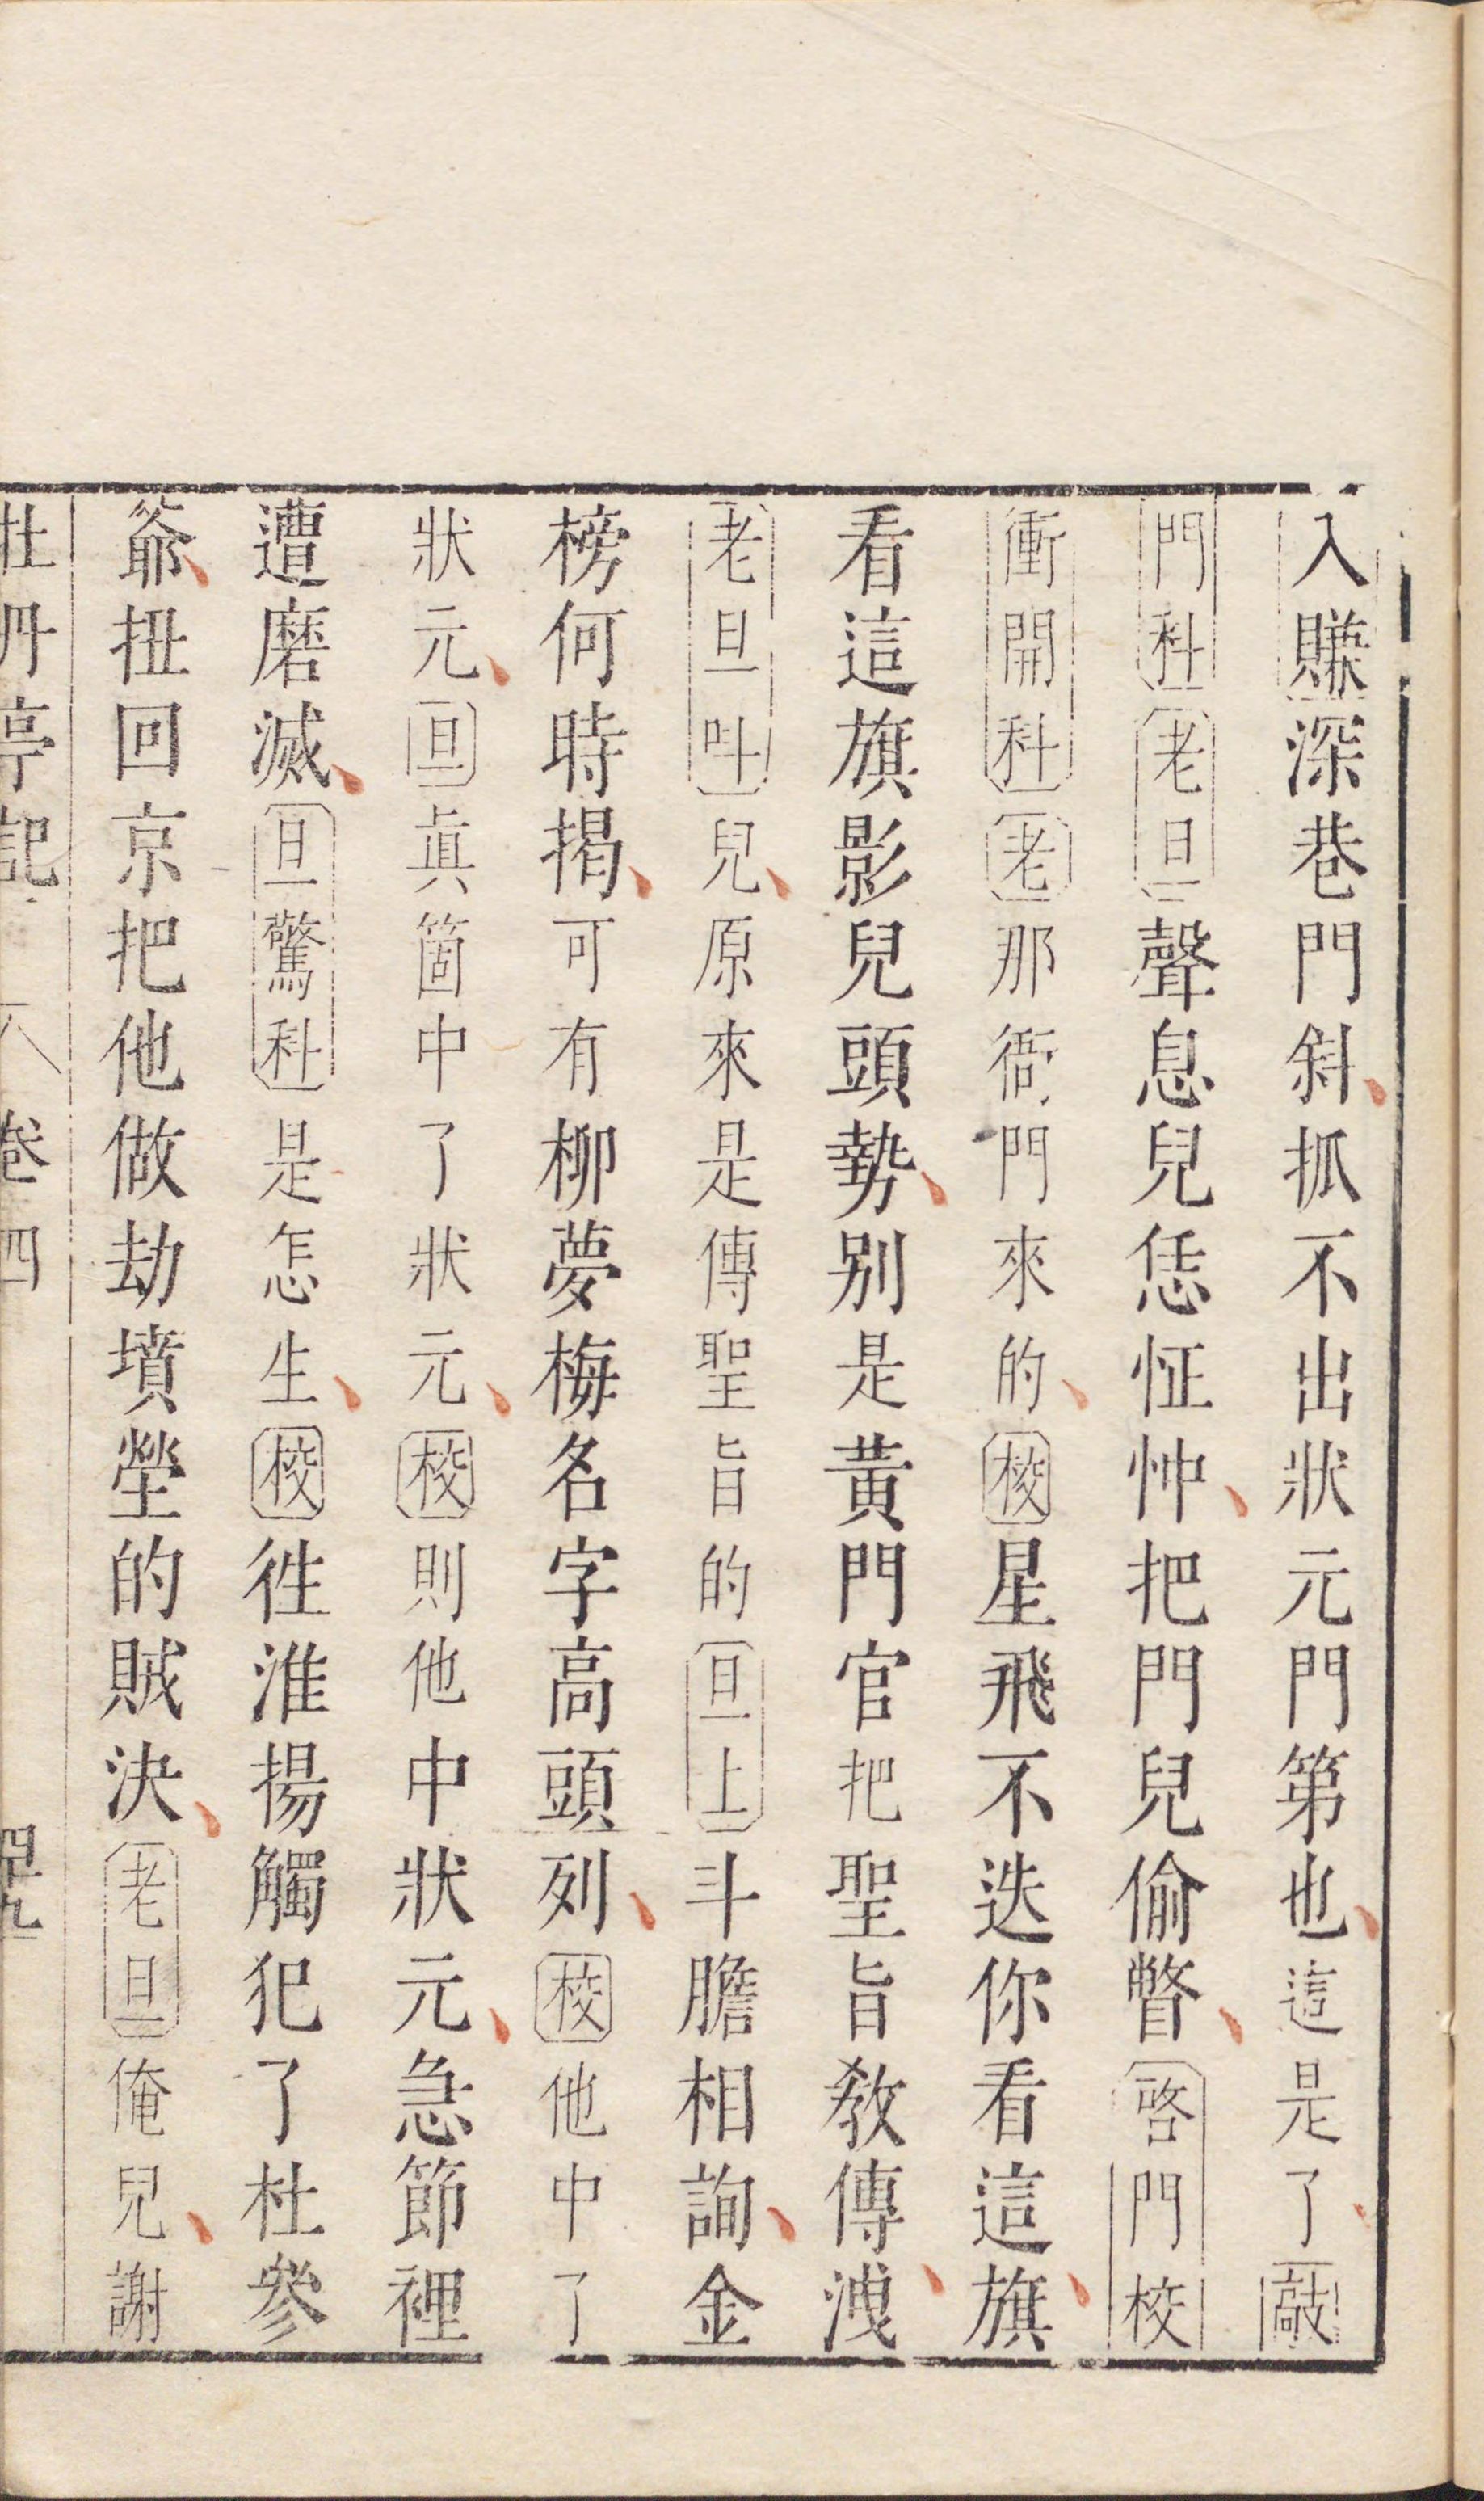 入賺深巷門斜抓不出狀元門第也這是了敲
門科老旦聲息兒恁怔忡把門兒偷瞥啓門校
衝開科老那衙門來的校星飛不迭你看這旗
看這旗影兒頭勢別是黃門官把聖旨教傳洩
老旦叫兒原來是傳聖旨的旦上斗膽相詢金
榜何時揭可有柳夢梅名字高頭列校他中了
狀元旦眞箇中了狀元校則他中狀元急節裡
遭磨滅旦驚科是怎生校徃淮揚觸犯了杜參
爺扭回京把他做劫墳塋的賊決老旦俺兒謝
牡丹亭記 卷四 四十九